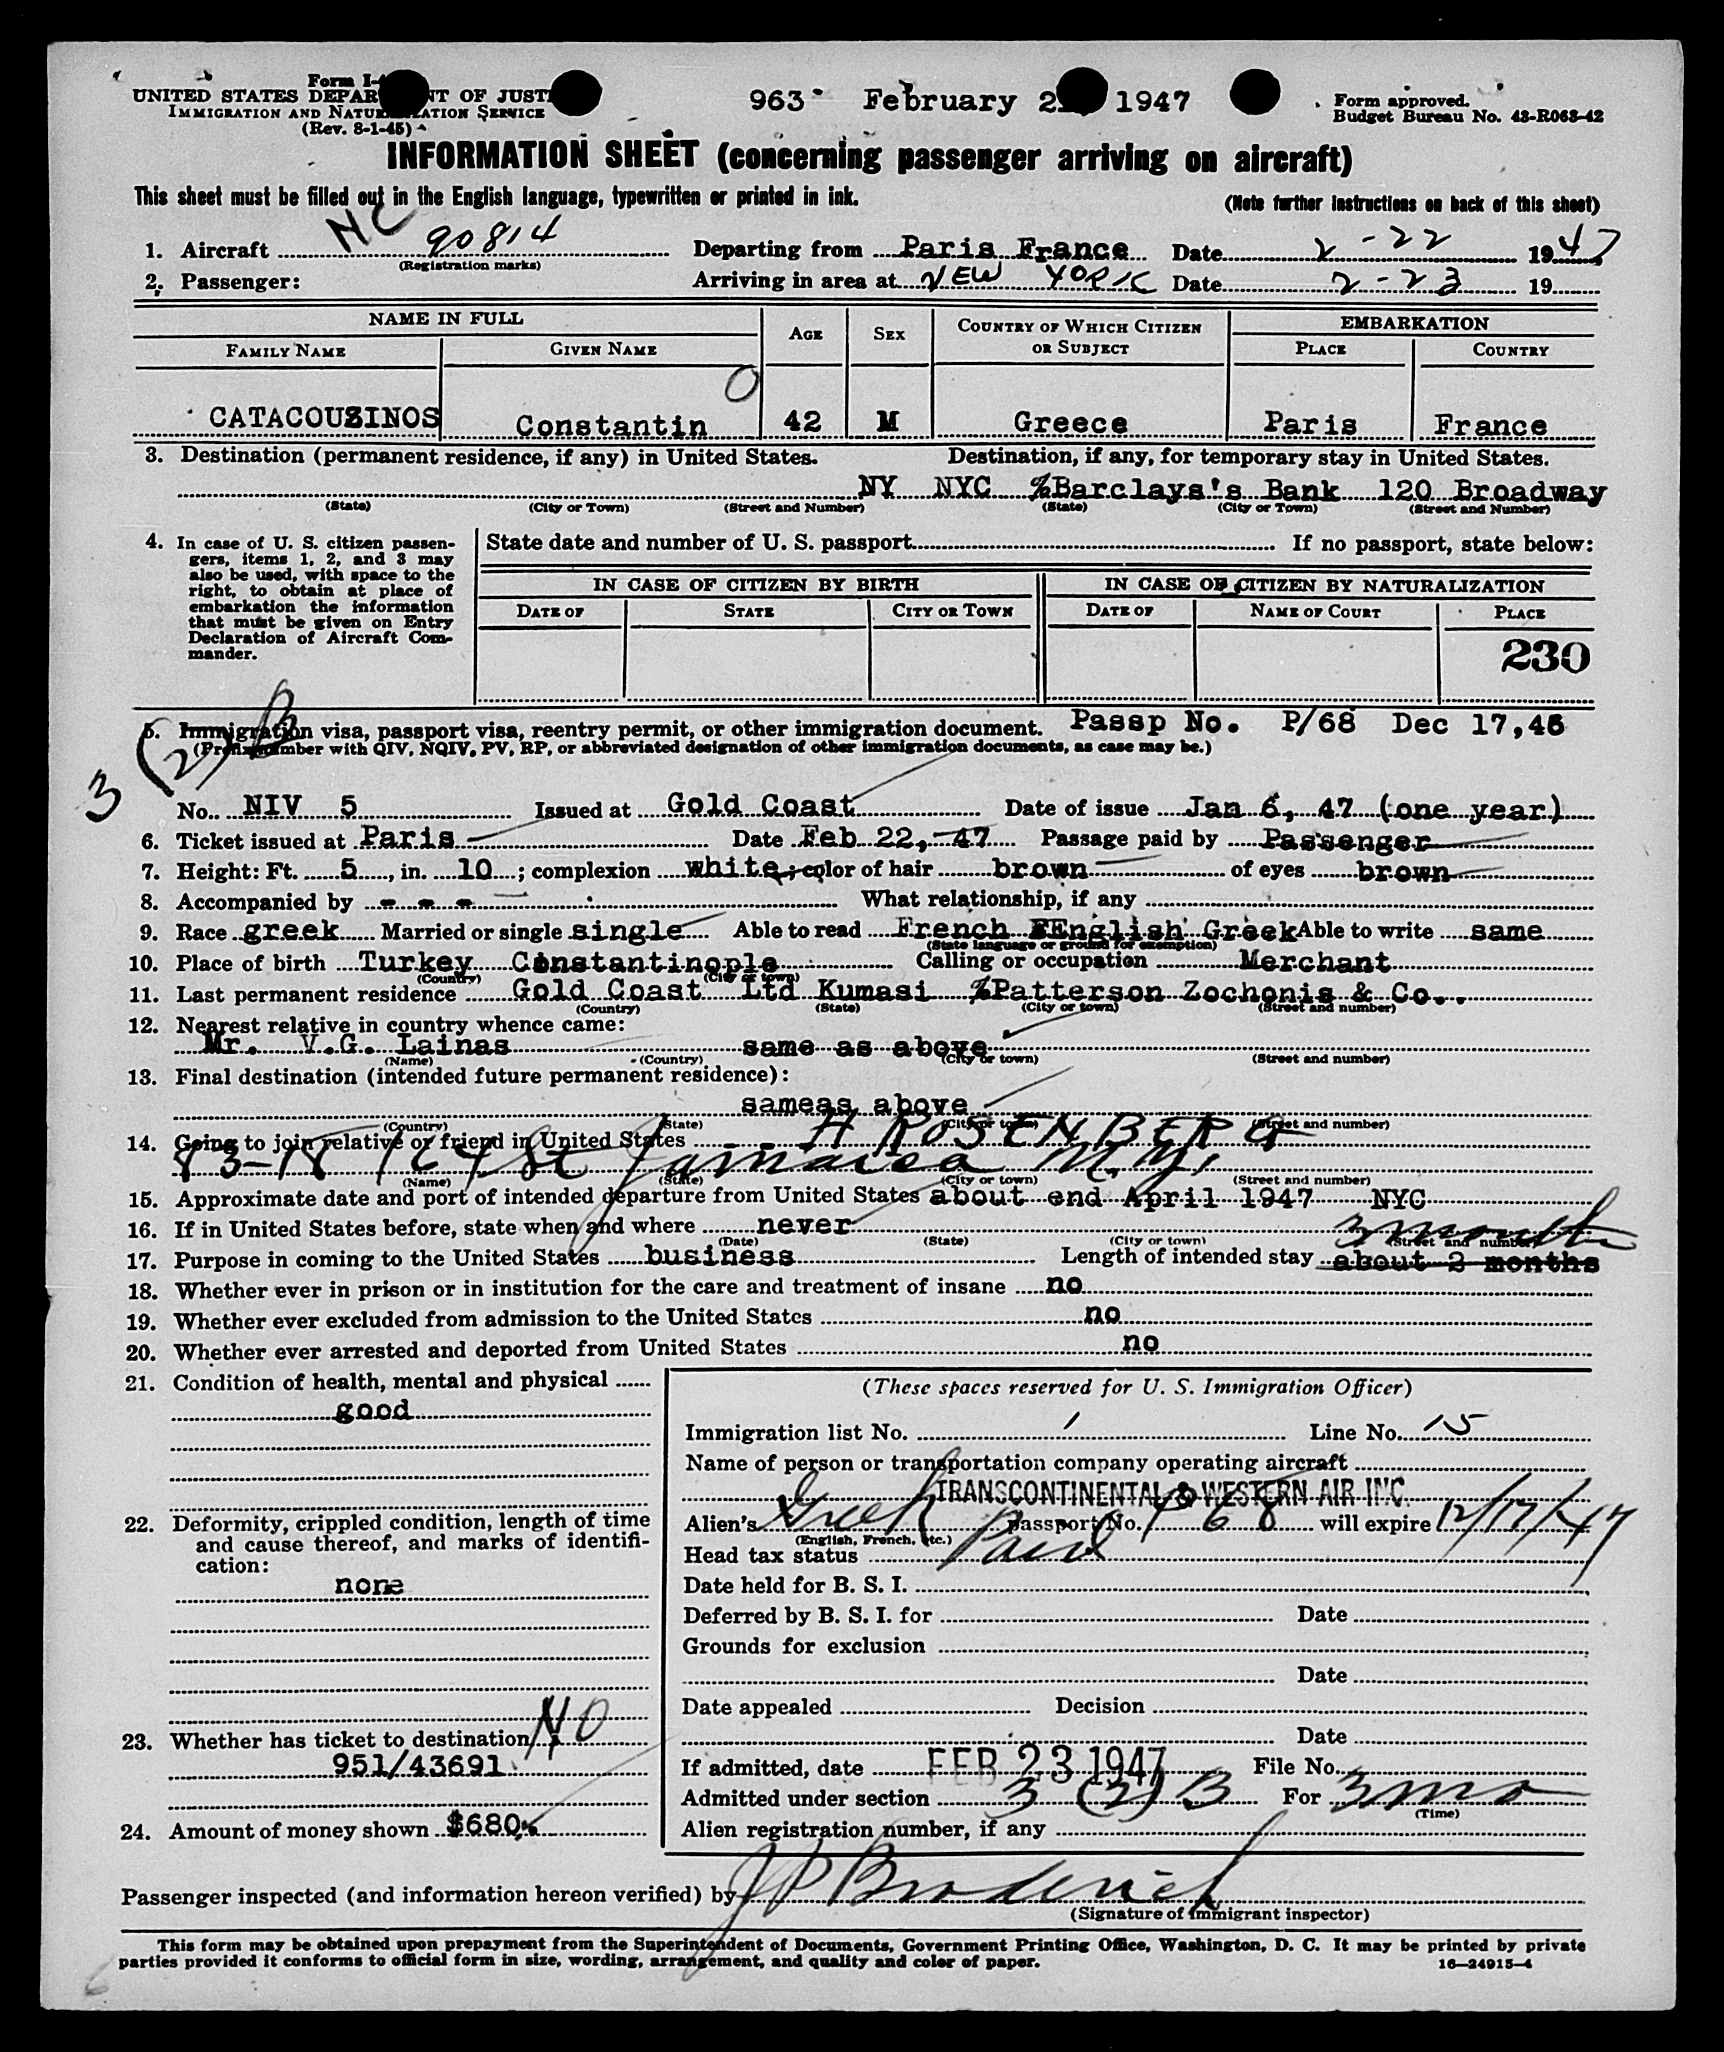 Form I-
UNITED STATES DEPARTMENT OF JUST
IMMIGRATION AND NATURALIZATION SERVICE
(Rev. 8-1-45)
963 February 2 1947
Form approved.
Budget Bureau No. 43-R063-42
INFORMATION SHEET (concerning passenger arriving on aircraft)
This sheet must be filled out in the English language, typewritten or printed in ink.
(Note further instructions on back of this sheet)
1. Aircraft NC 90814 Departing from Paris France Date 2-22 1947
(Registration marks)
2. Passenger: Arriving in area at NEW YORK Date 2-23 19
NAME IN FULL AGE SEX COUNTRY OF WHICH CITIZEN OR SUBJECT EMBARKATION
FAMILY NAME GIVEN NAME PLACE COUNTRY
O
CATACOUZINOS Constantin 42 M Greece Paris France
3. Destination (permanent residence, if any) in United States. Destination, if any, for temporary stay in United States.
NY NYC %Barclays's Bank 120 Broadway
(State) (City or Town) (Street and Number) (State) (City or Town) (Street and Number)
4. In case of U. S. citizen passengers, items 1, 2, and 3 may also be used, with space to the right, to obtain at place of embarkation the information that must be given on Entry Declaration of Aircraft Commander.
State date and number of U. S. passport If no passport, state below:
IN CASE OF CITIZEN BY BIRTH IN CASE OF CITIZEN BY NATURALIZATION
DATE OF STATE CITY OR TOWN DATE OF NAME OF COURT PLACE
230
5. Immigration visa, passport visa, reentry permit, or other immigration document. Passp No. P/68 Dec 17,46
(Prefix number with QIV, NQIV, PV, RP, or abbreviated designation of other immigration documents, as case may be.)
3 (2) B
No. NIV 5 Issued at Gold Coast Date of issue Jan 6, 47 (one year)
6. Ticket issued at Paris Date Feb 22, 47 Passage paid by Passenger
7. Height: Ft. 5, in. 10; complexion white; color of hair brown of eyes brown
8. Accompanied by - - - What relationship, if any
9. Race greek Married or single single Able to read French English Greek Able to write same
(State language or ground for exemption)
10. Place of birth Turkey Constantinople Calling or occupation Merchant
(Country) (City or town)
11. Last permanent residence Gold Coast Ltd Kumasi %Patterson Zochonis & Co..
(Country) (State) (City or town) (Street and number)
12. Nearest relative in country whence came:
Mr. V.G. Lainas same as above
(Name) (Country) (City or town) (Street and number)
13. Final destination (intended future permanent residence):
sameas above
(Country) (State) (City or town) (Street and number)
14. Going to join relative or friend in United States H ROSENBERG
83-18 164 St Jamaica N.Y.
(Name) (State) (City or town) (Street and number)
15. Approximate date and port of intended departure from United States about end April 1947 NYC
16. If in United States before, state when and where never
(Date) (State) (City or town) (Street and number)
3 months
17. Purpose in coming to the United States business Length of intended stay about 2 months
18. Whether ever in prison or in institution for the care and treatment of insane no
19. Whether ever excluded from admission to the United States no
20. Whether ever arrested and deported from United States no
21. Condition of health, mental and physical
good
22. Deformity, crippled condition, length of time and cause thereof, and marks of identification:
none
23. Whether has ticket to destination NO
951/43691
24. Amount of money shown $680
(These spaces reserved for U. S. Immigration Officer)
Immigration list No. 1 Line No. 15
Name of person or transportation company operating aircraft
TRANSCONTINENTAL & WESTERN AIR INC.
Alien's Greek passport No. P 68 will expire 12/17/47
(English, French, etc.)
Head tax status Paid
Date held for B. S. I.
Deferred by B. S. I. for Date
Grounds for exclusion
Date
Date appealed Decision
Date
If admitted, date FEB 23 1947 File No.
Admitted under section 3 (2) B For 3 mo
(Time)
Alien registration number, if any
Passenger inspected (and information hereon verified) by J P Broderick
(Signature of immigrant inspector)
This form may be obtained upon prepayment from the Superintendent of Documents, Government Printing Office, Washington, D. C. It may be printed by private
parties provided it conforms to official form in size, wording, arrangement, and quality and color of paper.
16—24915-4